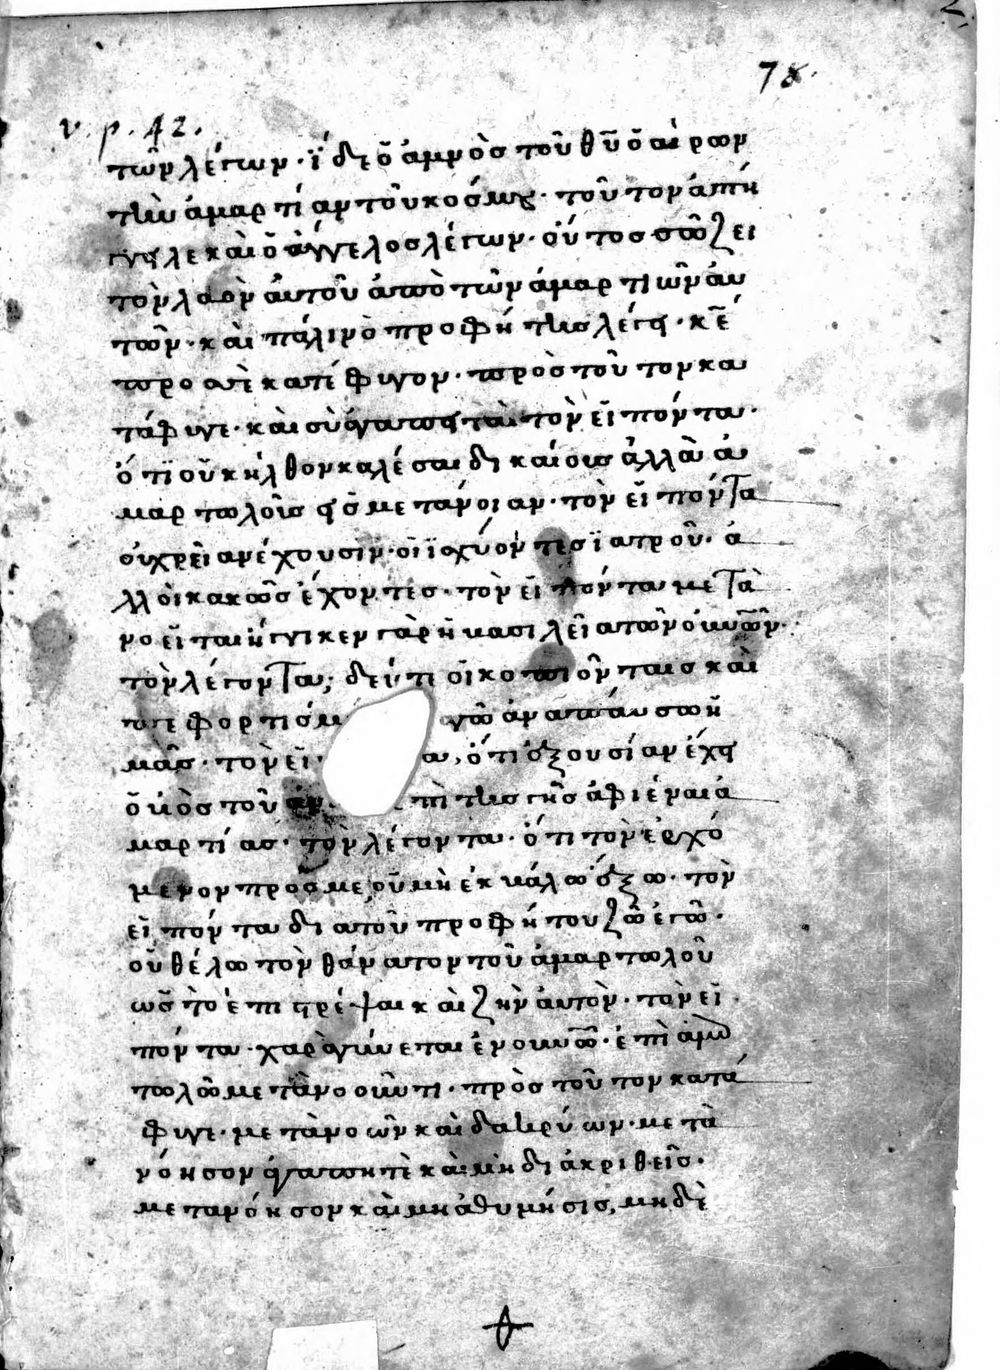 78.
v. p. 42.
τῶν λέγων· ἴδε ὁ ἀμνὸσ τοῦ θ̅υ̅ ὁ αἰρων
τὴν ἁμαρτίαν τοῦ κοσμου· τοῦτον ἀπή
γγειλε καὶ ὁ ἄγγελοσ λέγων· οὗτοσ σώζει
τὸν λαὸν ἀυτοῦ ἀπὸ τῶν ἁμαρτιῶν ἀυ
τῶν· καὶ πάλιν ὁ προφήτησ λέγει· κ̅ε̅
προσ σὲ κατέφυγον· πρὸσ τοῦτον κα
τάφυγε· καὶ σὺ ἀγαπητὲ τὸν εἰπόντα·
ὅτι οὐκ ἦλθον καλέσαι δικαίουσ ἀλλὰ ἁ
μαρτωλοὺσ εἰσ μετάνοιαν· τὸν εἰπόντα
οὐ χρεῖαν ἔχουσιν· οἱ ἰσχύοντεσ ἰατροῦ· ἀ
λλ οἱ κακῶσ ἔχοντεσ· τὸν εἰπόντα μετα
νοεῖται ἤγγικεν γὰρ ἡ βασιλεῖα τῶν ὀυν͞ων·
τὸν λέγοντα, δεύτε οἱ κοπιοῦνταισ καὶ
πεφορτισμ γὼ ἀναπάυσω ἡ
μᾶσ· τὸν εἰ α, ὅτι ἐξουσίαν ἔχει
ὁ υἱὸσ τοῦ ἀν πὶ τῆσ γῆσ ἀφιέναι ἁ
μαρτίασ· τὸν λέγοντα· ὅτι τὸν ἐρχό
μενον πρὸσ με, οὐ μὴ ἐκβάλω ἔξω· τὸν
εἰπόντα δια τοῦ προφήτου ζῶ ἐγῶ·
οὐ θέλω τὸν θάνατον τοῦ ἁμαρτωλοῦ
ὡσ τὸ ἐπιστρέψαι καὶ ζῆν ἀυτὸν· τὸν εἰ
πόντα· χαρὰ γίνεται ἐν ουν͞ω· ἐπὶ ἁμαρ
τωλῶ μετανοοῦντι· πρὸσ τοῦτον κατά
φυγε· μετανοῶν καὶ δακρύων· μετα
νόησον ἀγαπητὲ καὶ μὴ διακριθεῖσ·
μετανόησον καὶ μὴ ἀθυμήσισ, μηδὲ